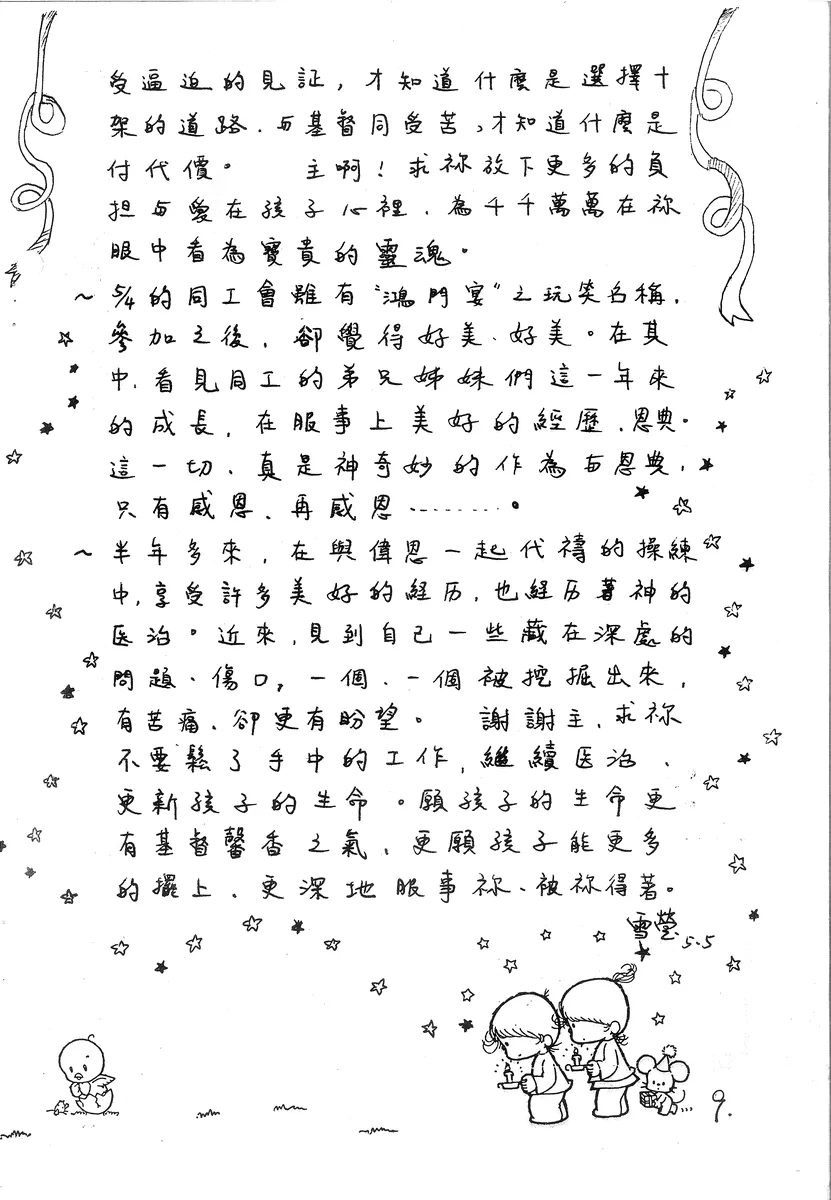 受逼迫的見証，才知道什麼是選擇十
架的道路、与基督同受苦，才知道什麼是
付代價。 主啊！求祢放下更多的負
担与愛在孩子心裡、為千千萬萬在祢
眼中看為寶貴的靈魂。
～ 5/4的同工會雖有“鴻門宴”之玩笑名稱，
參加之後，卻覺得好美、好美。在其
中，看見同工的弟兄姊妹們這一年來
的成長，在服事上美好的經歷、恩典。
這一切、真是神奇妙的作為与恩典，
只有感恩、再感恩………。
～ 半年多來，在與偉恩一起代禱的操練
中，享受許多美好的経历，也経历著神的
医治。近來，見到自己一些藏在深處的
問題、傷口，一個、一個被挖掘出來，
有苦痛、卻更有盼望。 謝謝主、求祢
不要鬆了手中的工作，繼續医治、
更新孩子的生命。願孩子的生命更
有基督馨香之氣、更願孩子能更多
的擺上、更深地服事祢、被祢得著。
雪瑩 5.5
9.